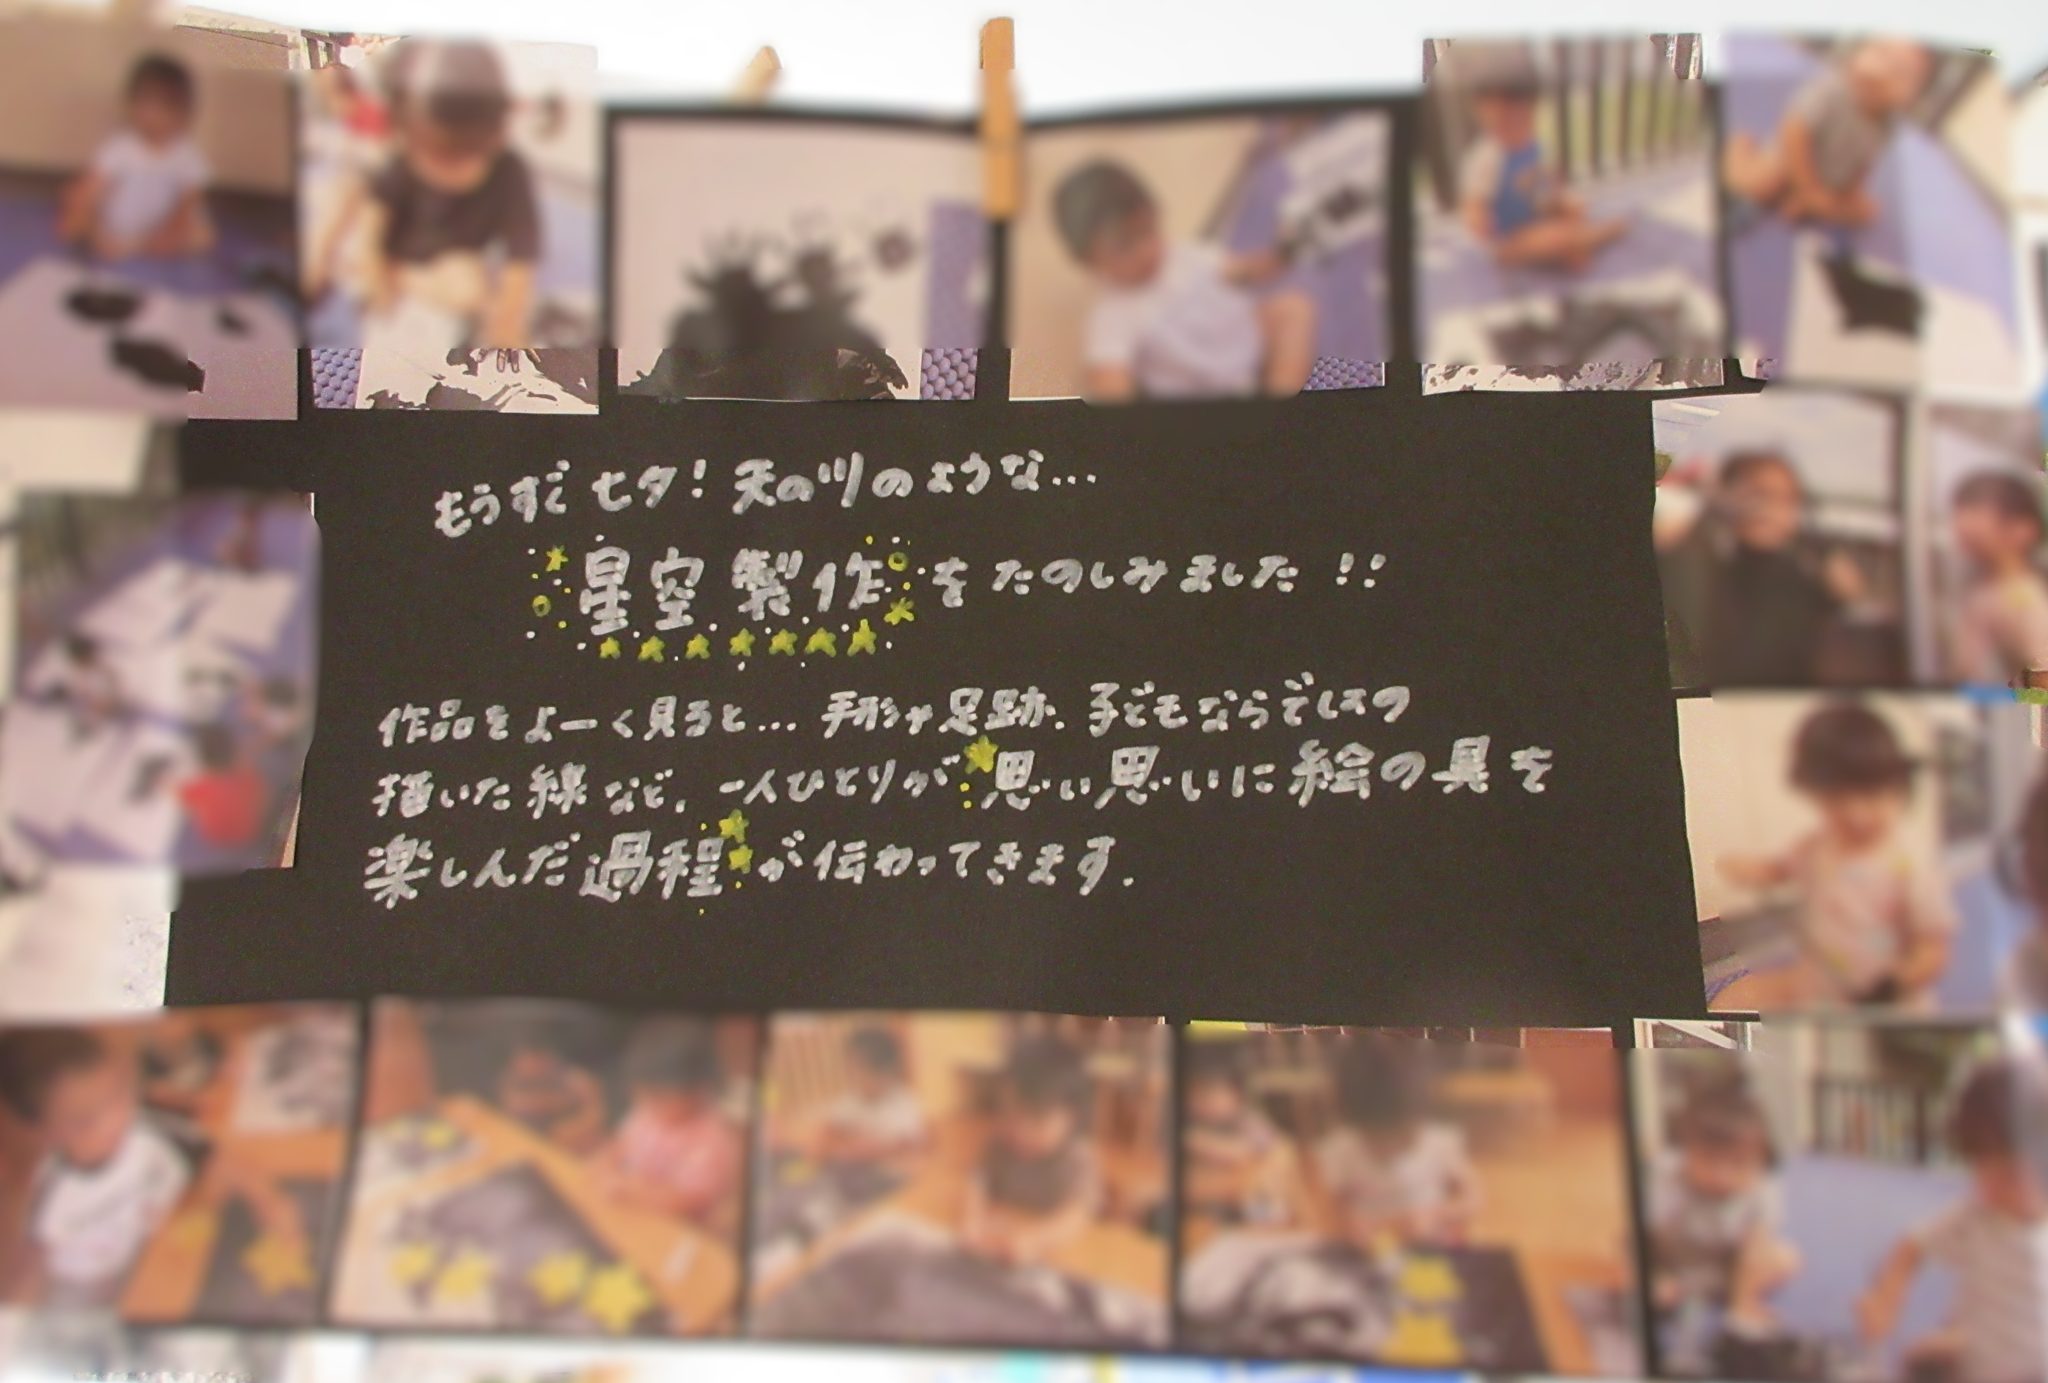 もうすぐ七夕!天の川のような...
星空製作をたのしみました!!
作品をよーく見ると...手形や足跡、子どもならではの
描いた線など、一人ひとりが思い思いに絵の具を
楽しんだ過程が伝わってきます.